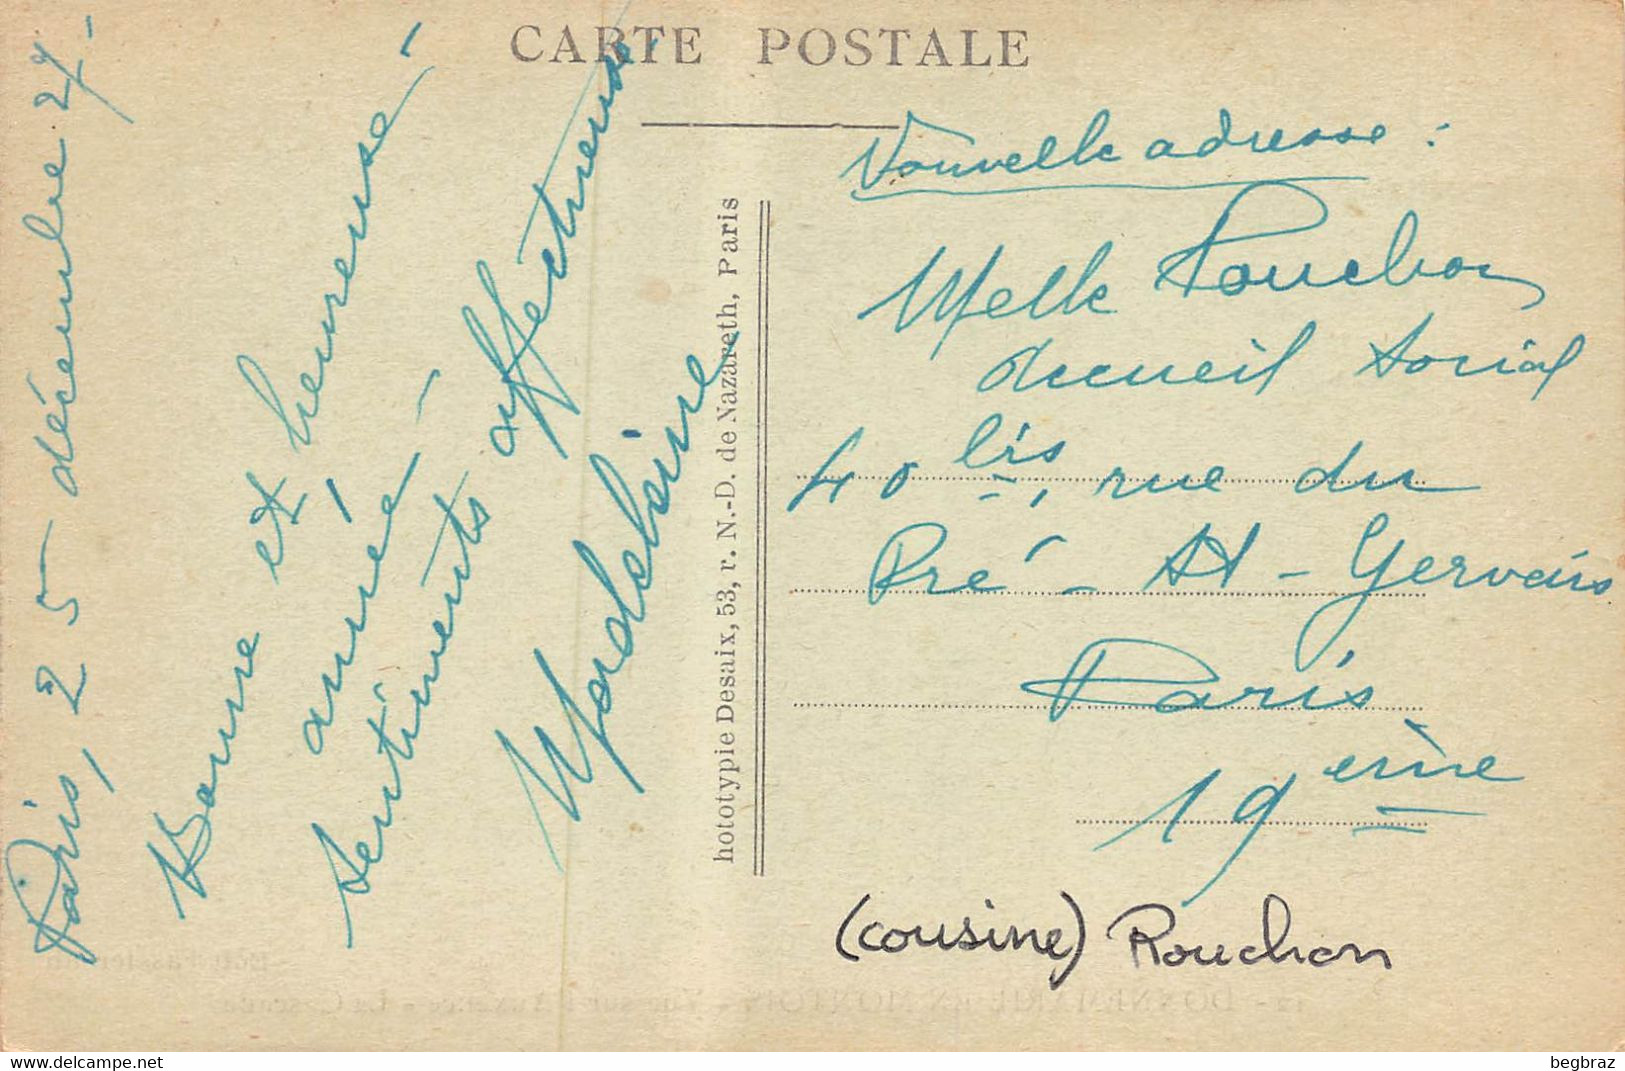 CARTE POSTALE
Paris, 25 décembre 27.
Bonne et heureuse
année
sentiments affectueux.
Madeleine
hototypie Desaix, 53, r. N.-D. de Nazareth, Paris
Nouvelle adresse :
Melle Rouchon
Accueil Social
40 bis, rue du
Pré-St-Gervais
Paris
19 ème
(cousine) Rouchon
12 - DONNEMARIE en MONTOIS - Vue sur l'Auxence - La Cascade
www.delcampe.net
begbraz